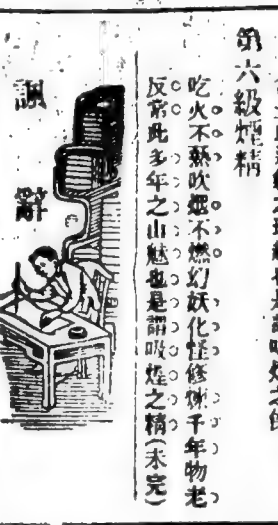 第六級煙精
吃火不熱吹烟不燃幻妖化怪修煉千年物老
反常此多年之山魅也是謂吸煙之精(未完)
辭